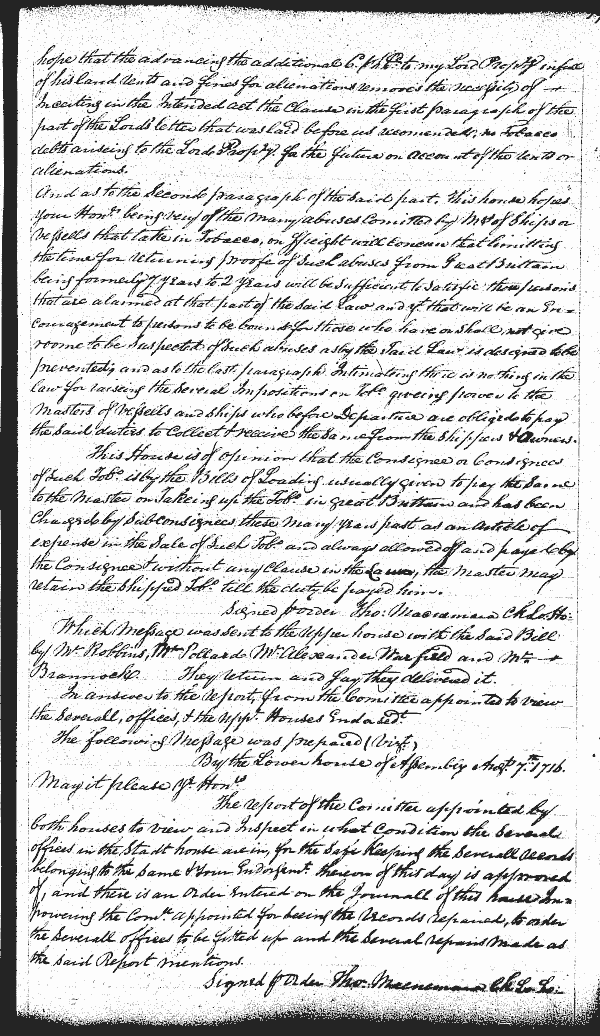 hope that the advancing the additional 6 p. Ct. to my Lord Propry in full
of his land rents and fines for alienations removes the necessity of
inserting in the Intended act the Clause in the first paragraph of the
part of the Lords letter that was laid before us recomended, no Tobacco
debts ariseing to the Lords Propry. for the future on account of the rents or
alienations.
And as to the Second paragraph of the said part. This house hopes
your Honrs. being very of the many abuses Comitted by Mrs of Ships or
Vessells that take in Tobacco, on ffreight will concur that limitting
the time for returning proofe of such abuses from Great Brittain
being formerly 7 years to 2 years will be sufficient to satisfie those persons
that are alarmed at that part of the said Law and yt. that will be an En=
couragement to persons to be bound for those who have or shall not give
roome to be suspected of such abuses as by the said Law is designed to be
prevented; and as to the last paragraph Intimating there is nothing in the
law for raiseing the Several Impositions on Tobo. giveing power to the
Masters of Vessells and Ships who before Departure are obliged to pay
the said duties to Collect & receive the same from the Shippers & Owners.
This House is of opinion that the Consignee or Consignees
of such Tobo. is by the Bills of Loading usually given to pay the same
to the Master on Takeing up the Tobo. in great Brittain and has been
Charged by Sub consignees these many years past as an article of
expense in the Sale of such Tobo. and always allowed off and payed by
the Consignee & without any Clause in the Laws, the Master may
retain the Shipped Tobo. till the duty be payed him.
Signed p order Tho: Macnemara Ck Lo. Ho:
Which Message was sent to the Upper house with the said Bill
by Mr. Robbins, Mr. Pollard Mr. Alexander Warfield and Mr.
Brannock. They return and say they delivered it.
In answer to the report, from the Comittee appointed to view
the Severall, offices, & the uppr. Houses Endorst.
The following Message was prepared (Vizt.)
By the Lower house of Assembly Augt. 7th. 1716.
May it please yr. Honrs
The report of the Comittee appointed by
both houses to view and Inspect in what Condition the Several
offices in the Stadt house are in, for the safe keeping the Severall records
belonging to the same & your Endorsemt. thereon of this day is approved
of, and there is an order Entered on the Journall of this house Im=
powering the Comrs. appointed for seeing the records repaired, to order
the Severall offices to be fitted up and the Several repairs made as
the said Report mentions.
Signed p Order Tho: Macnemara Ck Lo. Ho: